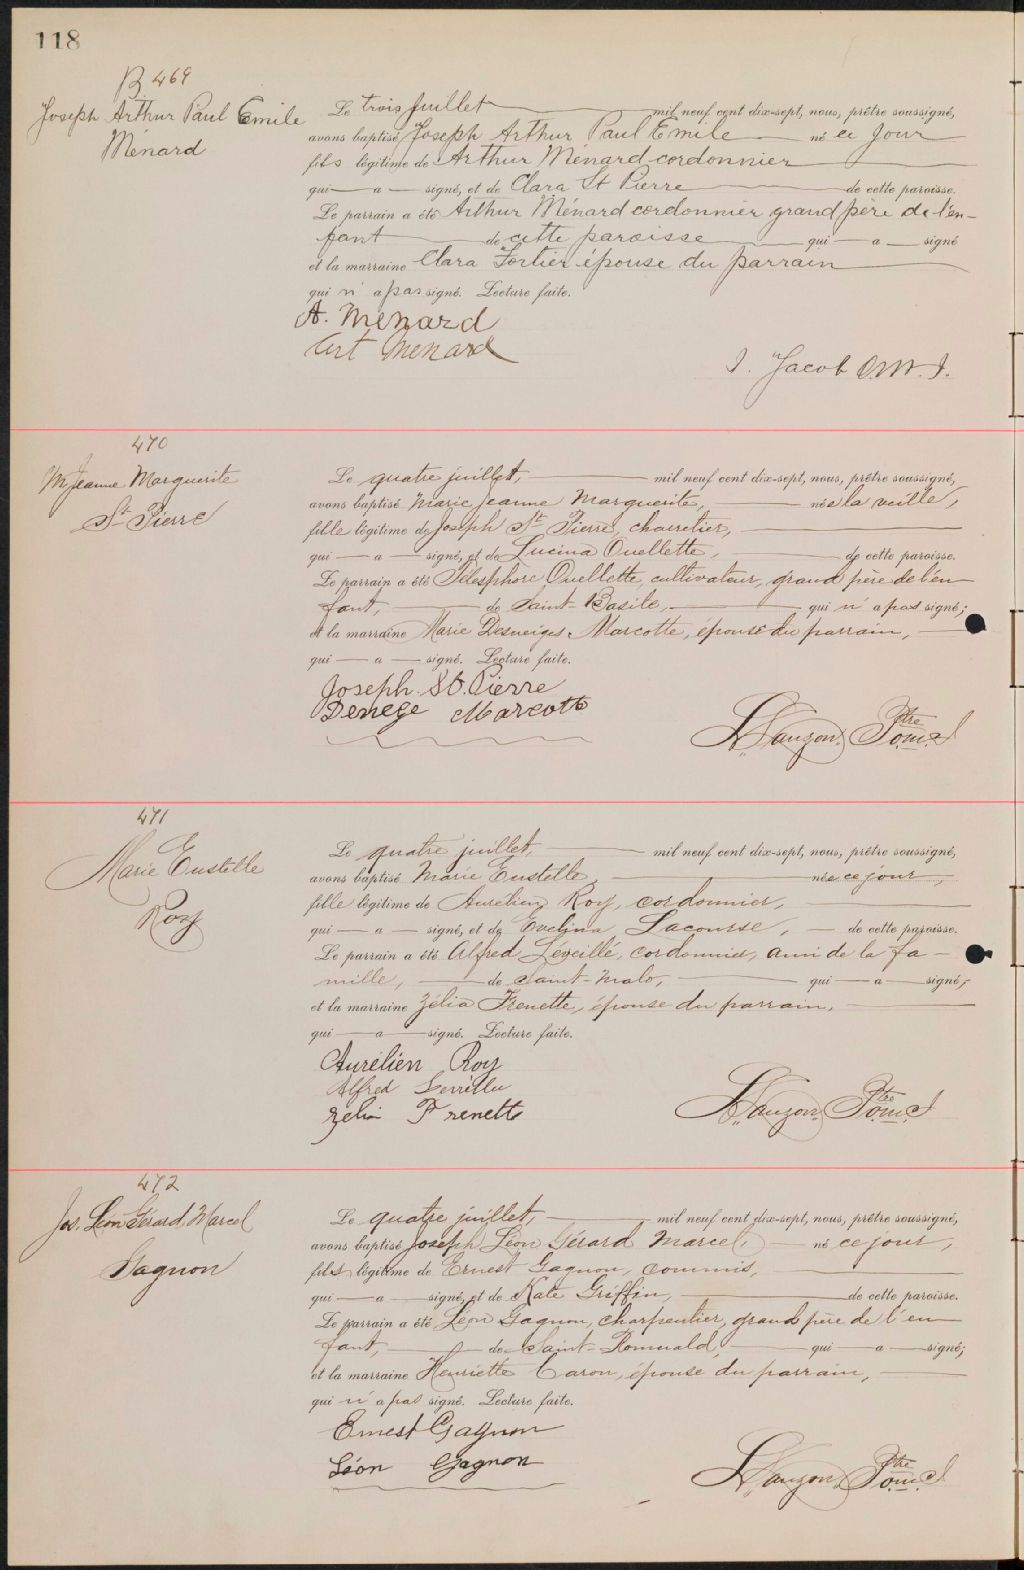 118
B 469
Joseph Arthur Paul Emile
Ménard
Le trois juillet mil neuf cent dix-sept, nous, prêtre soussigné,
avons baptisé Joseph Arthur Paul Emile né ce jour
fils légitime de Arthur Ménard cordonnier
qui a signé, et de Clara St Pierre de cette paroisse.
Le parrain a été Arthur Ménard cordonnier grand père de l'en-
fant de cette paroisse qui a signé
et la marraine Clara Fortier épouse du parrain
qui n'a pas signé. Lecture faite.
A. Menard
Art Menard
J. Jacob O.M.I.
470
M. Jeanne Marguerite
St Pierre
Le quatre juillet, mil neuf cent dix-sept, nous, prêtre soussigné,
avons baptisé Marie Jeanne Marguerite, née la veille,
fille légitime de Joseph St Pierre, charretier,
qui a signé, et de Lucina Ouellette, de cette paroisse.
Le parrain a été Télesphore Ouellette, cultivateur, grand père de l'en
fant, de Saint-Basile, qui n'a pas signé;
et la marraine Marie Desneiges Marcotte, épouse du parrain,
qui a signé. Lecture faite.
Joseph St. Pierre
Denege Marcotte
L. Lauzon, Ptre o.m.i
471
Marie Eustelle
Roy
Le quatre juillet, mil neuf cent dix-sept, nous, prêtre soussigné,
avons baptisé Marie Eustelle, née ce jour,
fille légitime de Aurélien Roy, cordonnier,
qui a signé, et de Evelina Lacourse, de cette paroisse.
Le parrain a été Alfred Léveillé, cordonnier, ami de la fa-
mille, de Saint-Malo, qui a signé,
et la marraine Zélia Frenette, épouse du parrain,
qui a signé. Lecture faite.
Aurélien Roy
Alfred
Zelia Frenette
L. Lauzon, Ptre o.m.i
472
Jos. Léon Gérard Marcel
Gagnon
Le quatre juillet, mil neuf cent dix-sept, nous, prêtre soussigné,
avons baptisé Joseph Léon Gérard Marcel né ce jour,
fils légitime de Ernest Gagnon, commis,
qui a signé, et de Kate Griffin, de cette paroisse.
Le parrain a été Léon Gagnon, charpentier, grand père de l'en
fant, de Saint-Romuald, qui a signé;
et la marraine Henriette Caron, épouse du parrain,
qui n'a pas signé. Lecture faite.
Ernest Gagnon
Léon Gagnon
L. Lauzon, Ptre o.m.i